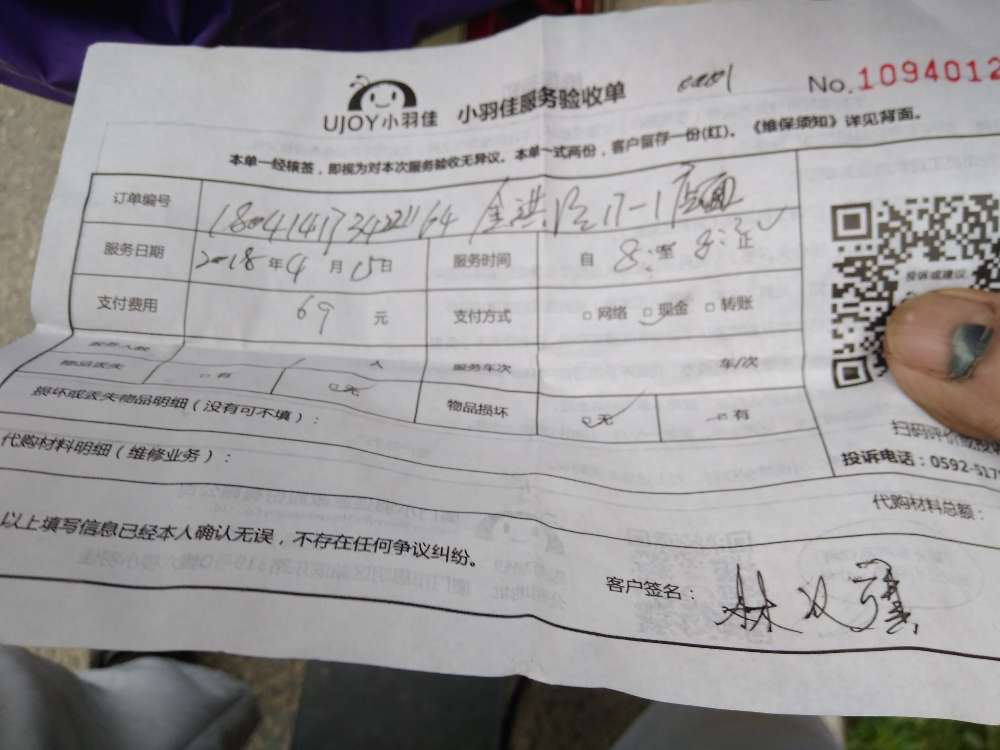 UJOY小羽佳 小羽佳服务验收单 No.1094012
本单一经核签，即视为对本次服务验收无异议。本单一式两份，客户留存一份(红)。《维保须知》详见背面。
订单编号 17-1
服务日期 2018年4月15日 服务时间 自 8: 至 8:
支付费用 69 元 支付方式 □网络 □现金 □转账
服务人数 人 服务车次 车/次
物品丢失 □有 □无 物品损坏 □无 □有
损坏或丢失物品明细（没有可不填）：
代购材料明细（维修业务）：
投诉或建议
扫码评价或投
投诉电话：0592-517
代购材料总额：
以上填写信息已经本人确认无误，不存在任何争议纠纷。
客户签名：林